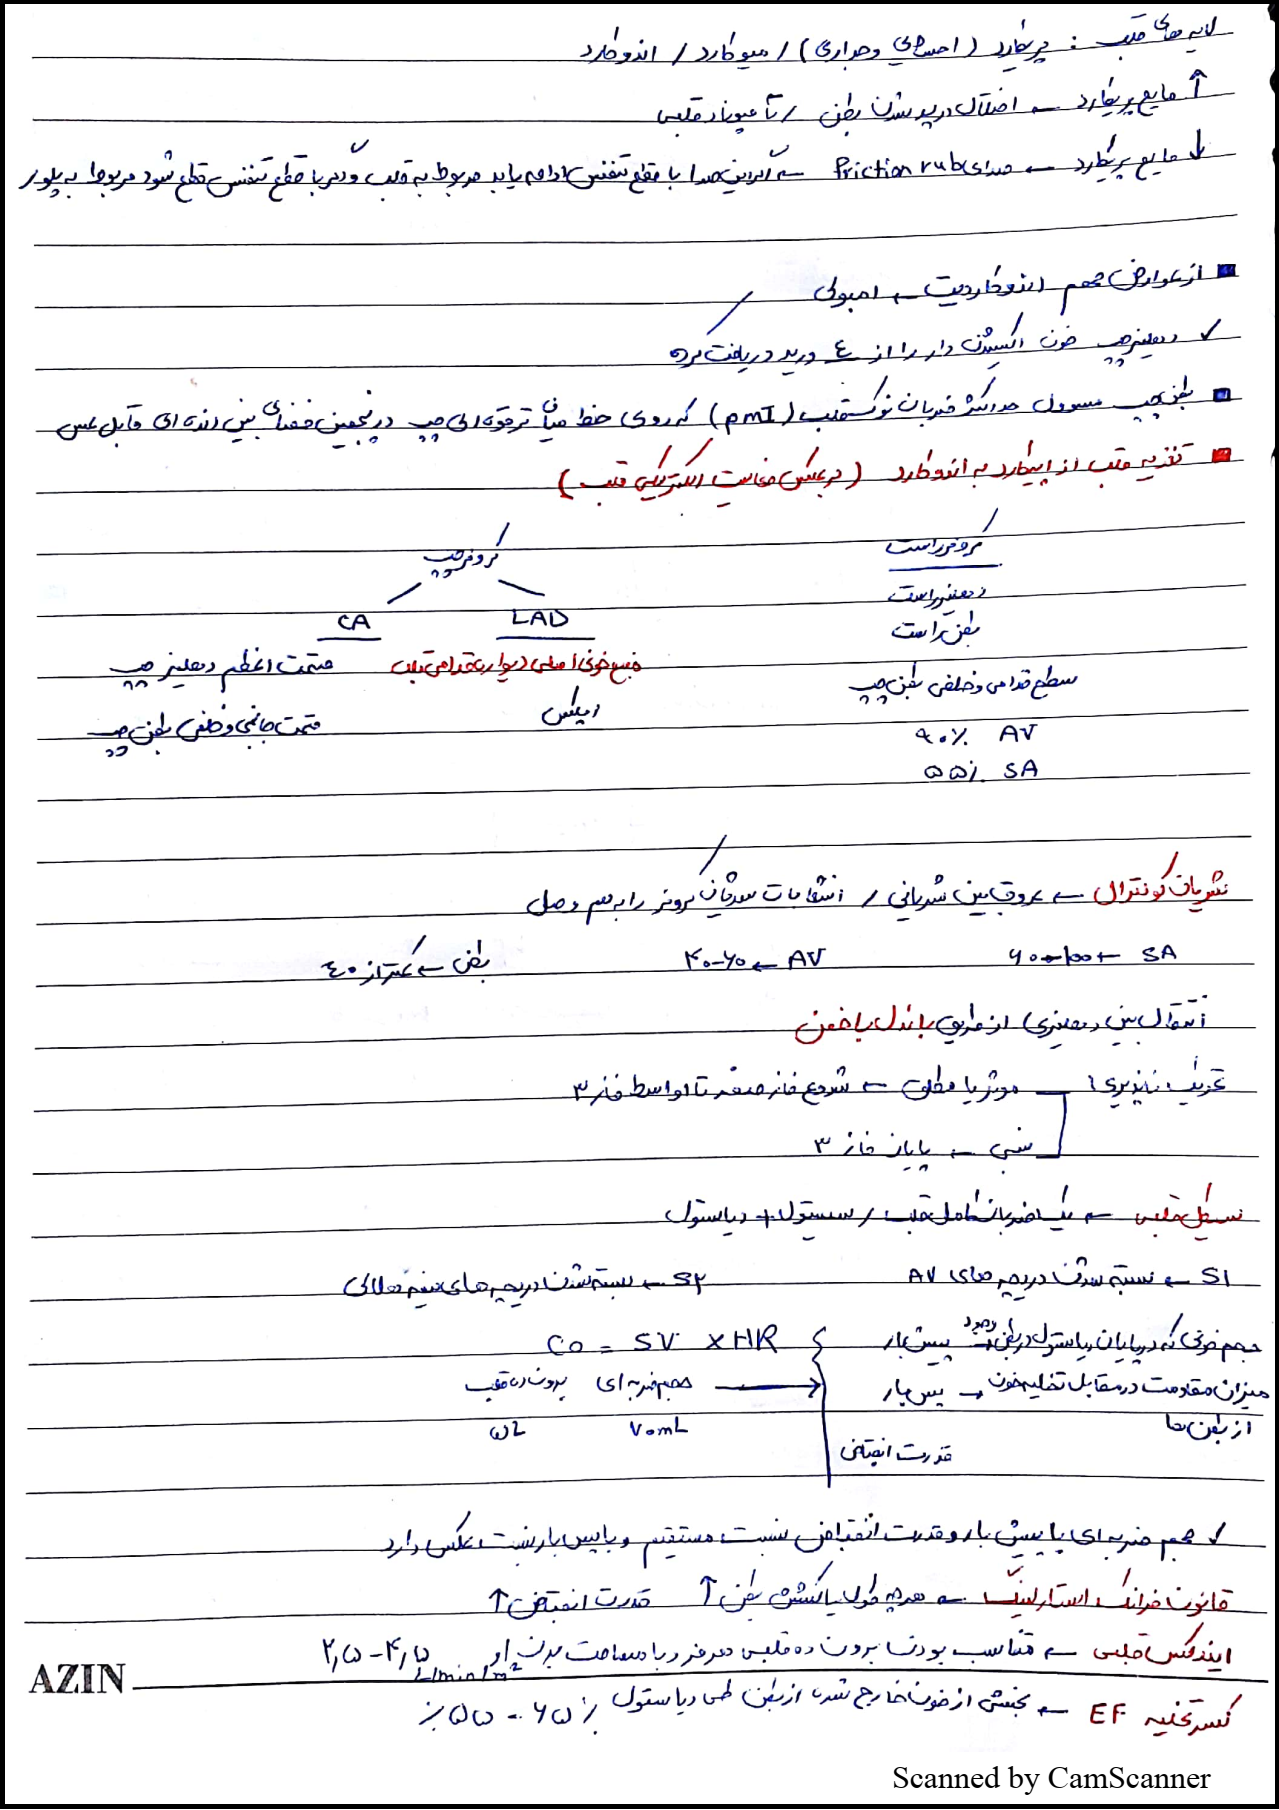 لایه های قلب : پریکارد (احشایی و جداری) / میوکارد / اندوکارد
↑ مایع پریکارد ← اختلال در پر شدن بطن / تامپوناد قلبی
↓ مایع پریکارد ← صدای friction rub ← اگر این صدا با قطع تنفس ادامه یابد مربوط به قلب و اگر با قطع تنفس قطع شود مربوط به پلور
■ از عوارض مهم اندوکاردیت ← آمبولی
✓ دهلیز چپ خون اکسیژن دار را از ٤ ورید دریافت کرده
■ بطن چپ مسوول حداکثر ضربان نوک قلب (PMI) که روی خط میان ترقوه ای چپ در پنجمین فضای بین دنده ای قابل لمس
■ تغذیه قلب از اپیکارد به اندوکارد (برعکس فعالیت الکتریکی قلب)
کرونر راست
کرونر چپ
دهلیز راست
بطن راست
سطح قدامی و خلفی بطن چپ
۹۰٪ AV
۵۵٪ SA
LAD
منبع خونی اصلی دیواره قدامی قلب
اپکس
CA
قسمت اعظم دهلیز چپ
قسمت جانبی و خلفی بطن چپ
شریان کونترال ← عروق بین شریانی / انشعابات شریان کرونر را به هم وصل
SA ← ۶۰-۱۰۰ AV ← ۴۰-۶۰ بطن ← کمتر از ٤۰
انتقال بین دهلیزی از طریق باندل باخمن
تحریک ناپذیری : موثر یا مطلق ← شروع فاز صفر تا اواسط فاز ۳
نسبی ← پایان فاز ۳
سیکل قلبی ← یک ضربان کامل قلب / سیستول + دیاستول
S۱ ← بسته شدن دریچه های AV S۲ ← بسته شدن دریچه های نیمه هلالی
حجم خونی که در پایان دیاستول در بطن وجود ← پیش بار
CO = SV × HR
میزان مقاومت در مقابل تخلیه خون از بطن ها ← پس بار
حجم ضربه ای برون ده قلب
۷۰mL ۵L
قدرت انقباض
✓ حجم ضربه ای با پیش بار و قدرت انقباض نسبت مستقیم و با پس بار نسبت عکس دارد
قانون فرانک استارلینگ ← هرچه طول یا کشش بطن ↑ قدرت انقباض ↑
ایندکس قلبی ← متناسب بودن برون ده قلبی هر فرد با مساحت بدن او ۲,۵-۴,۵ L/min/m²
AZIN
کسر تخلیه EF ← بخشی از خون خارج شده از بطن طی دیاستول ٪۶۵ - ۵۵٪
Scanned by CamScanner